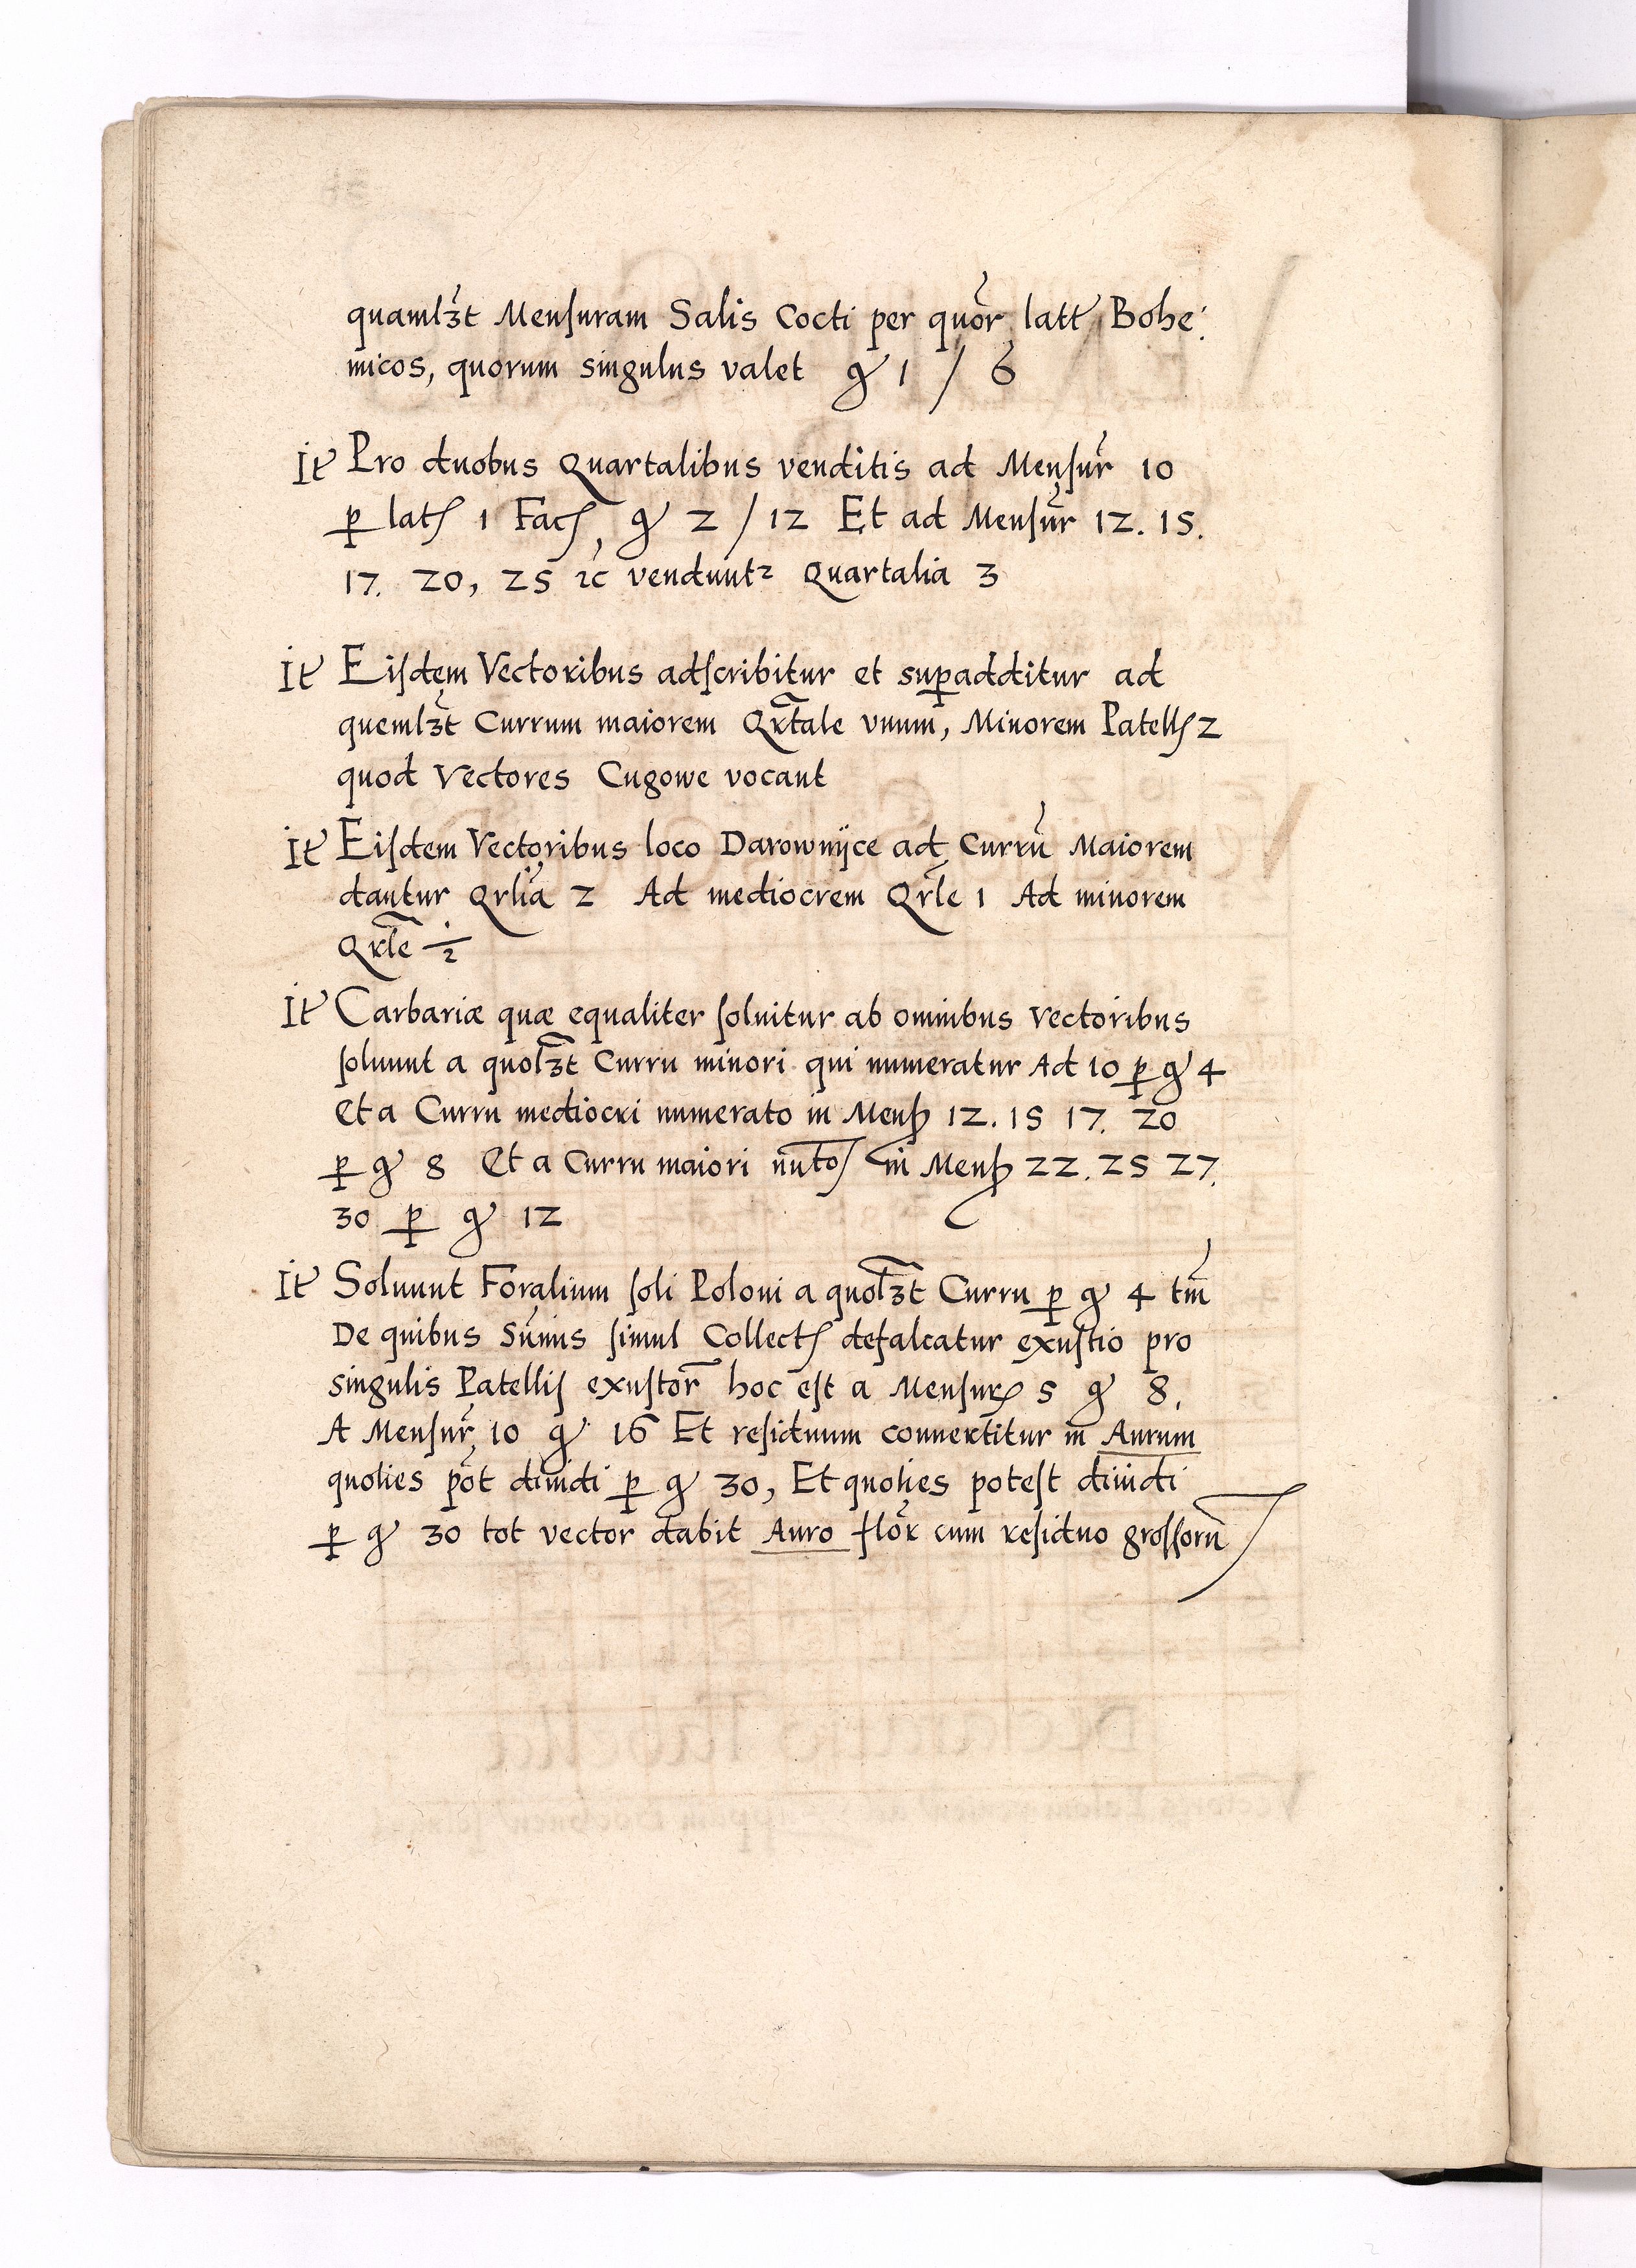 quamlꝫt Mensuram Salis Cocti per quor latt Bohe:
micos, quorum singulus valet gͬ 1 / 6
It Pro duobus Quartalibus venditis ad Mensur 10
ꝑ lats 1 Facs, gͬ 2 / 12 Et ad Mensur 12. 15.
17. 20, 25 ꝛc vendunt² Quartalia 3
It Eisdem Vectoribus adscribitur et suꝑadditur ad
quemlꝫt Currum maiorem Qrtale vnum, Minorem Patells 2
quod Vectores Cugowe vocant
It Eisdem Vectoribus loco Darownÿce ad Currū Maiorem
dantur Qrlia 2 Ad mediocrem Qrle 1 Ad minorem
Qrle ½
It Carbariæ quæ equaliter soluitur ab omnibus Vectoribus
soluunt a quolꝫt Curru minori qui numeratur Ad 10 ꝑ gͬ 4
Et a Curru mediocri numerato in Mens 12. 15 17. 20
ꝑ gͬ 8 Et a Curru maiori nūto in Mens 22. 25 27.
30 ꝑ gͬ 12
It Soluunt Foralium soli Poloni a quolꝫt Curru ꝑ gͬ 4 tm̄
De quibus Sum̄is simul Collects defalcatur exustio pro
singulis Patellis exustor hoc est a Mensurꝭ 5 gͬ 8.
A Mensur 10 gͬ 16 Et residuum conuertitur in Aurum
quoties pōt diuidi ꝑ gͬ 30, Et quoties potest diuidi
ꝑ gͬ 30 tot vector dabit Auro flor cum residuo grossorū